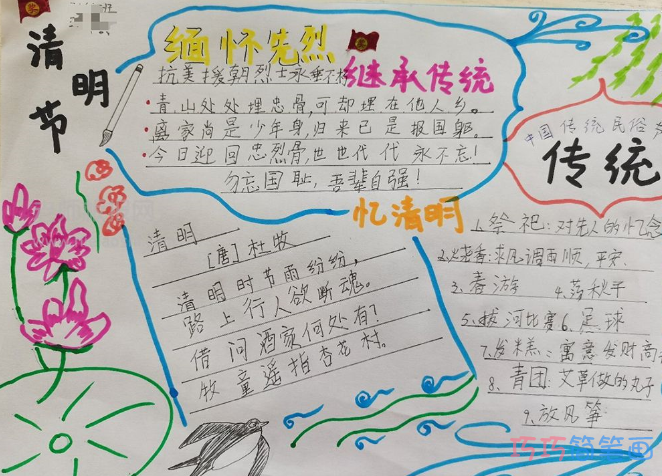 清明节
班
缅怀先烈
继承传统
抗美援朝烈士永垂不朽
青山处处埋忠骨,可却埋在他人乡。
离家尚是少年身,归来已是报国躯。
今日迎回忠烈骨,世世代代永不忘!
勿忘国耻,吾辈自强!
忆清明
清明
[唐]杜牧
清明时节雨纷纷,
路上行人欲断魂。
借问酒家何处有?
牧童遥指杏花村。
中国传统民俗
传统
1.祭祀:对先人的怀念
2.烧香:求风调雨顺,平安
3.春游 4.荡秋千
5.拔河比赛 6.足球
7.发糕:寓意发财高
8.青团:艾草做的丸子
9.放风筝
巧巧简笔画